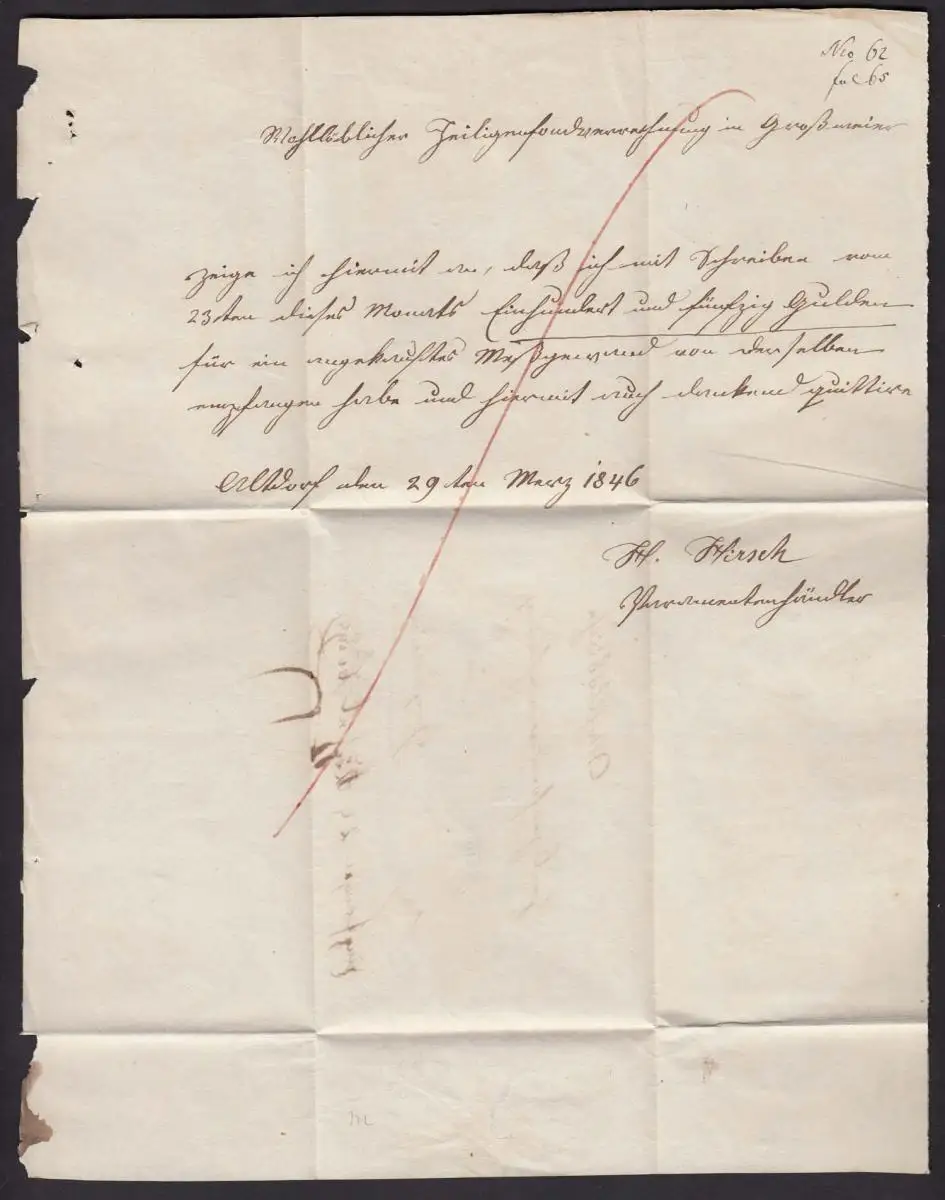 Nro 62
fol 65
Wohllöblicher Heiligenfondverrechnung in Großweier
zeige ich hiermit an, daß ich mit Schreiben vom
23ten dieses Monats Einhundert und fünfzig Gulden
für ein angekauftes Meßgewand von derselben
empfangen habe und hiermit auch dankend quittire
Altdorf den 29ten Merz 1846
H. Hirsch
Paramentenhändler